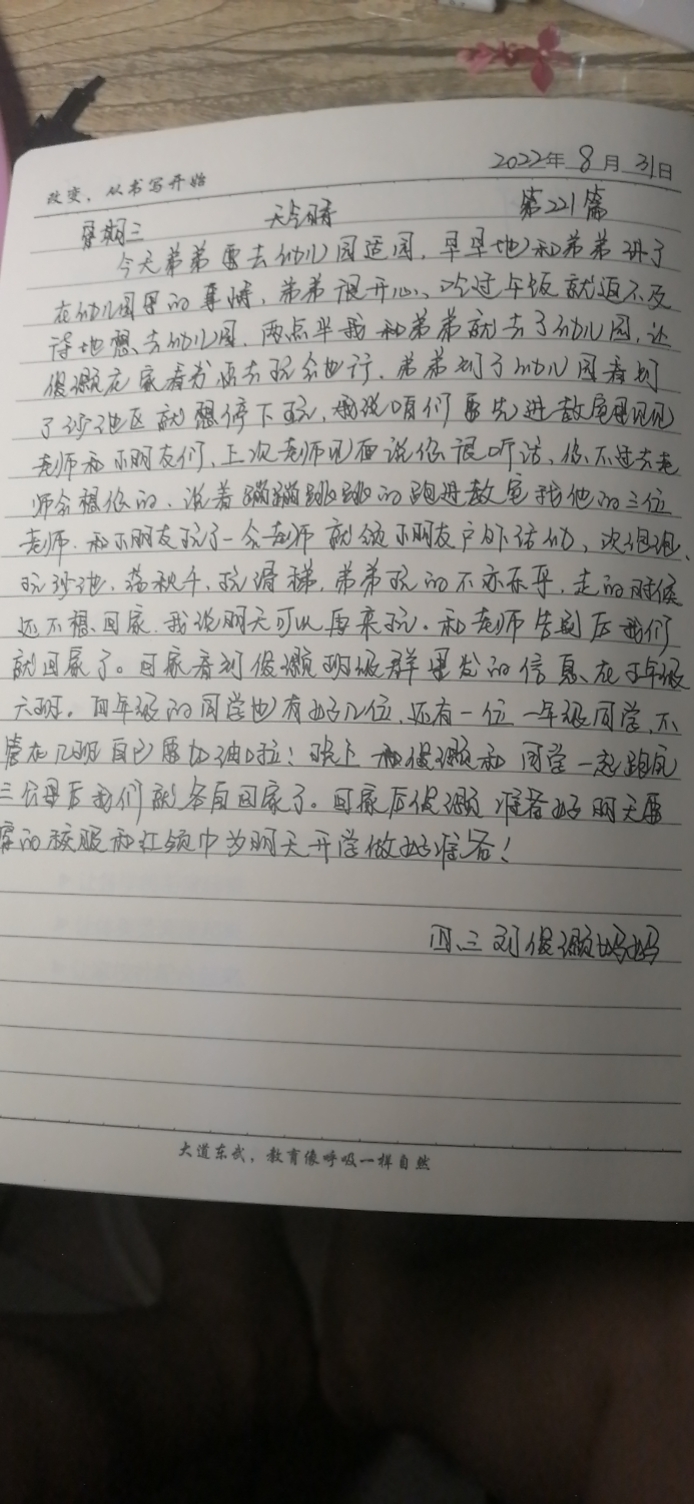 改变，从书写开始
2022年 8月 31日
星期三 天气晴 第221篇
今天弟弟要去幼儿园适园，早早地和弟弟讲了
在幼儿园里的事情，弟弟很开心、吃过午饭就迫不及
待地想去幼儿园，两点半我和弟弟就去了幼儿园，让
俊灏在家看书 去玩会也行，弟弟到了幼儿园看到
了沙池区就想停下玩，我说咱们要先进教室里见见
老师和小朋友们、上次老师见面说你很听话，你不过去老
师会想你的，说着蹦蹦跳跳的跑进教室找他的三位
老师，和小朋友玩了一会老师就领小朋友户外活动、吹泡泡、
玩沙池、荡秋千、玩滑梯，弟弟玩的不亦乐乎，走的时候
还不想回家，我说明天可以再来玩。和老师告别后我们
就回家了。回家看到俊灏班级群里发的信息、在五年级
六班。四年级的同学也有好几位，还有一位一年级同学，不
管在几班自己要加油啦！晚上和俊灏和同学一起跑完
三公里后我们就各自回家了。回家后俊灏准备好明天要
穿的校服和红领巾为明天开学做好准备！
四.三 刘俊灏妈妈
大道东武，教育像呼吸一样自然